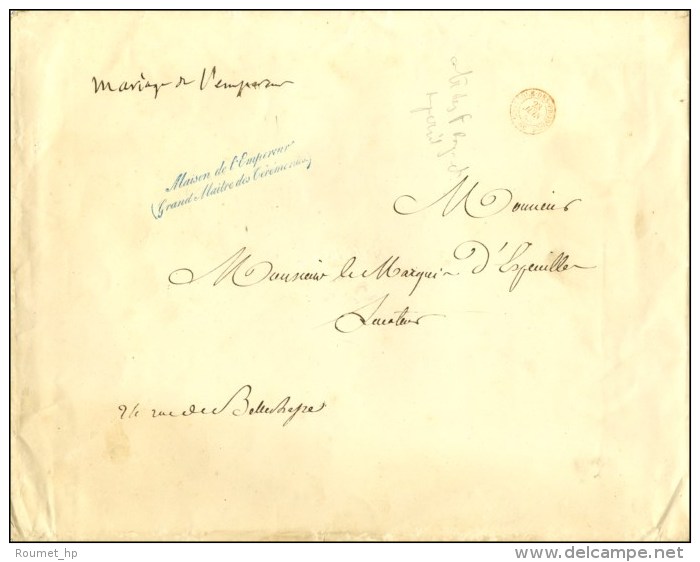 Mariage de l'empereur
Maison de l'Empereur
(Grand Maître des Cérémonies)
Monsieur
Monsieur le Marquis D'Espeuilles
Sénateur
24 rue de Bellechasse
Roumet_hp
www.delcampe.net